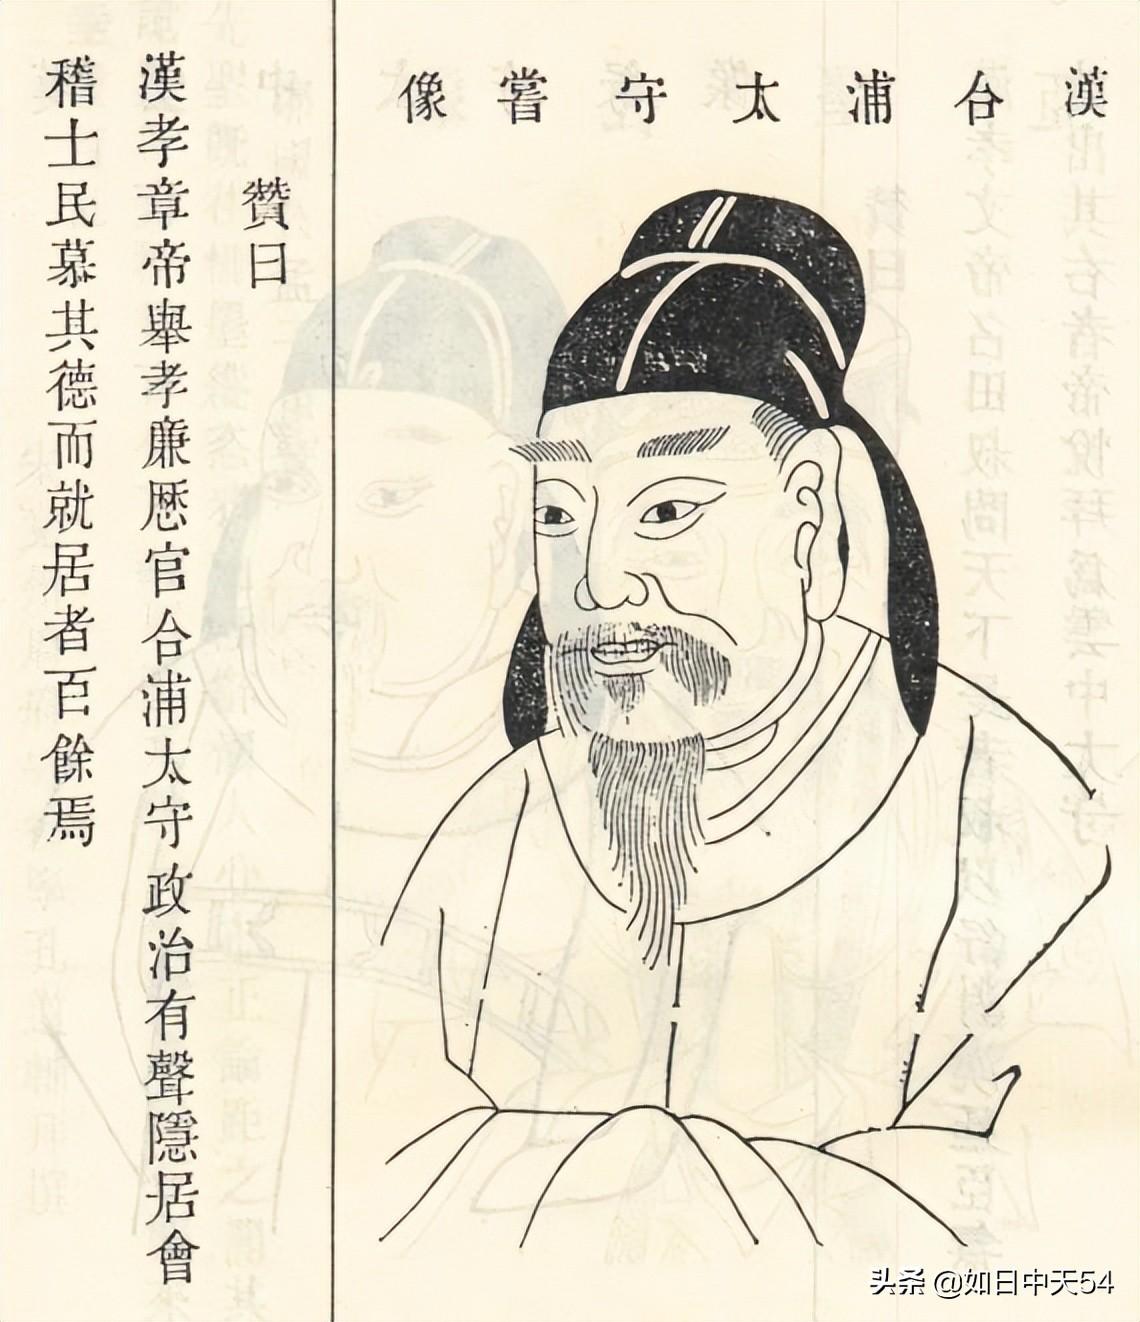 漢合浦太守嘗像
贊曰
漢孝章帝舉孝廉歴官合浦太守政治有聲隱居會
稽士民慕其德而就居者百餘焉
头条 @如日中天54